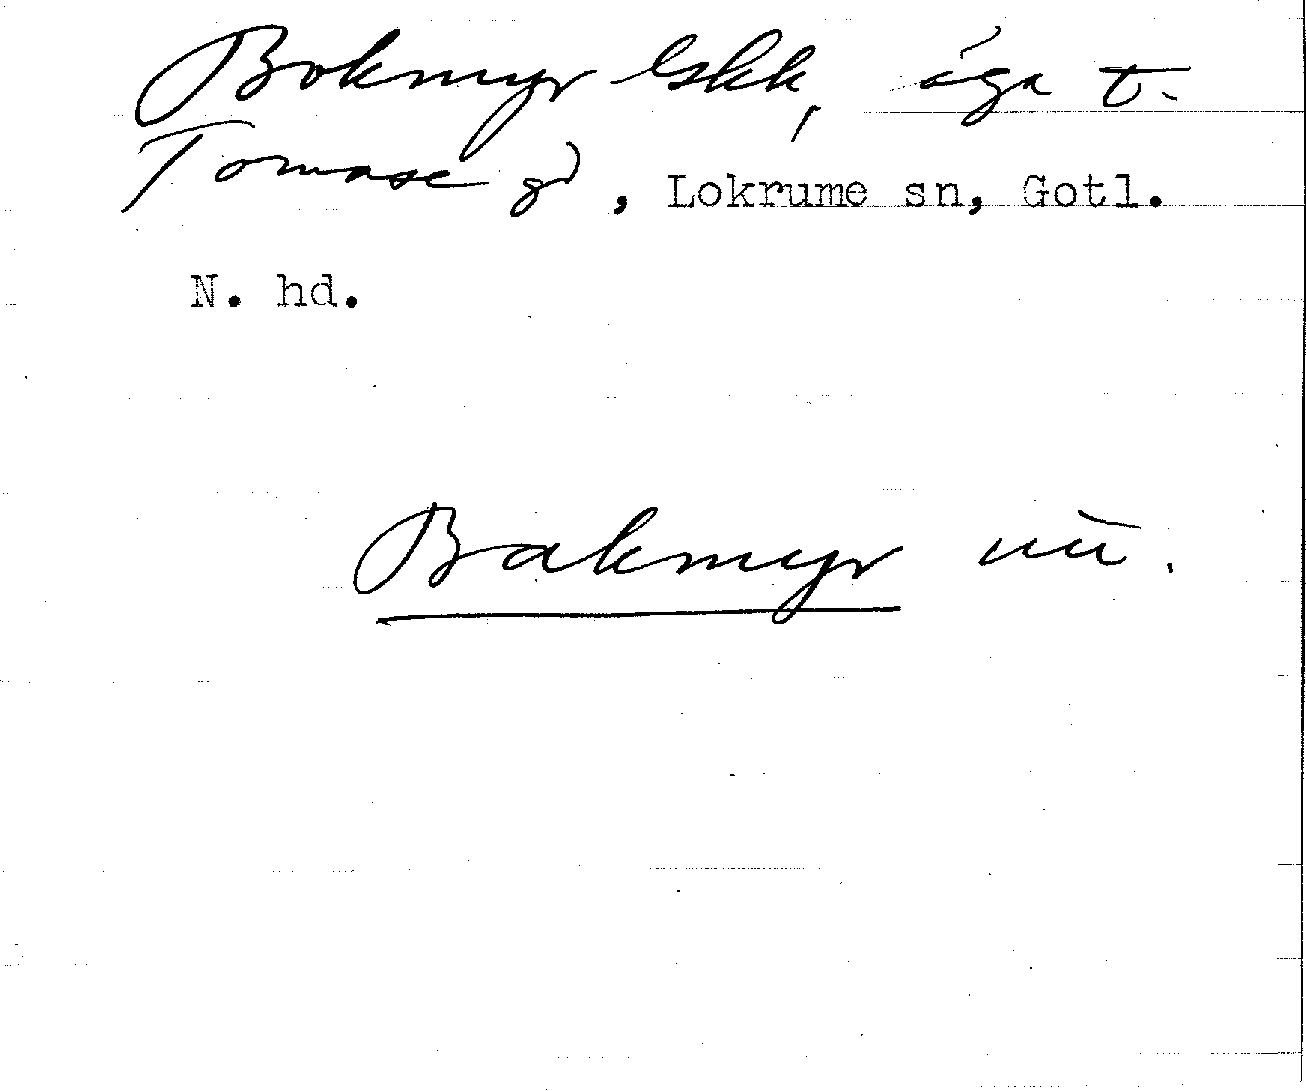 Bokmyr lskk, äga t.
Tomase gd, Lokrume sn, Gotl.
N. hd.
Bakmyr